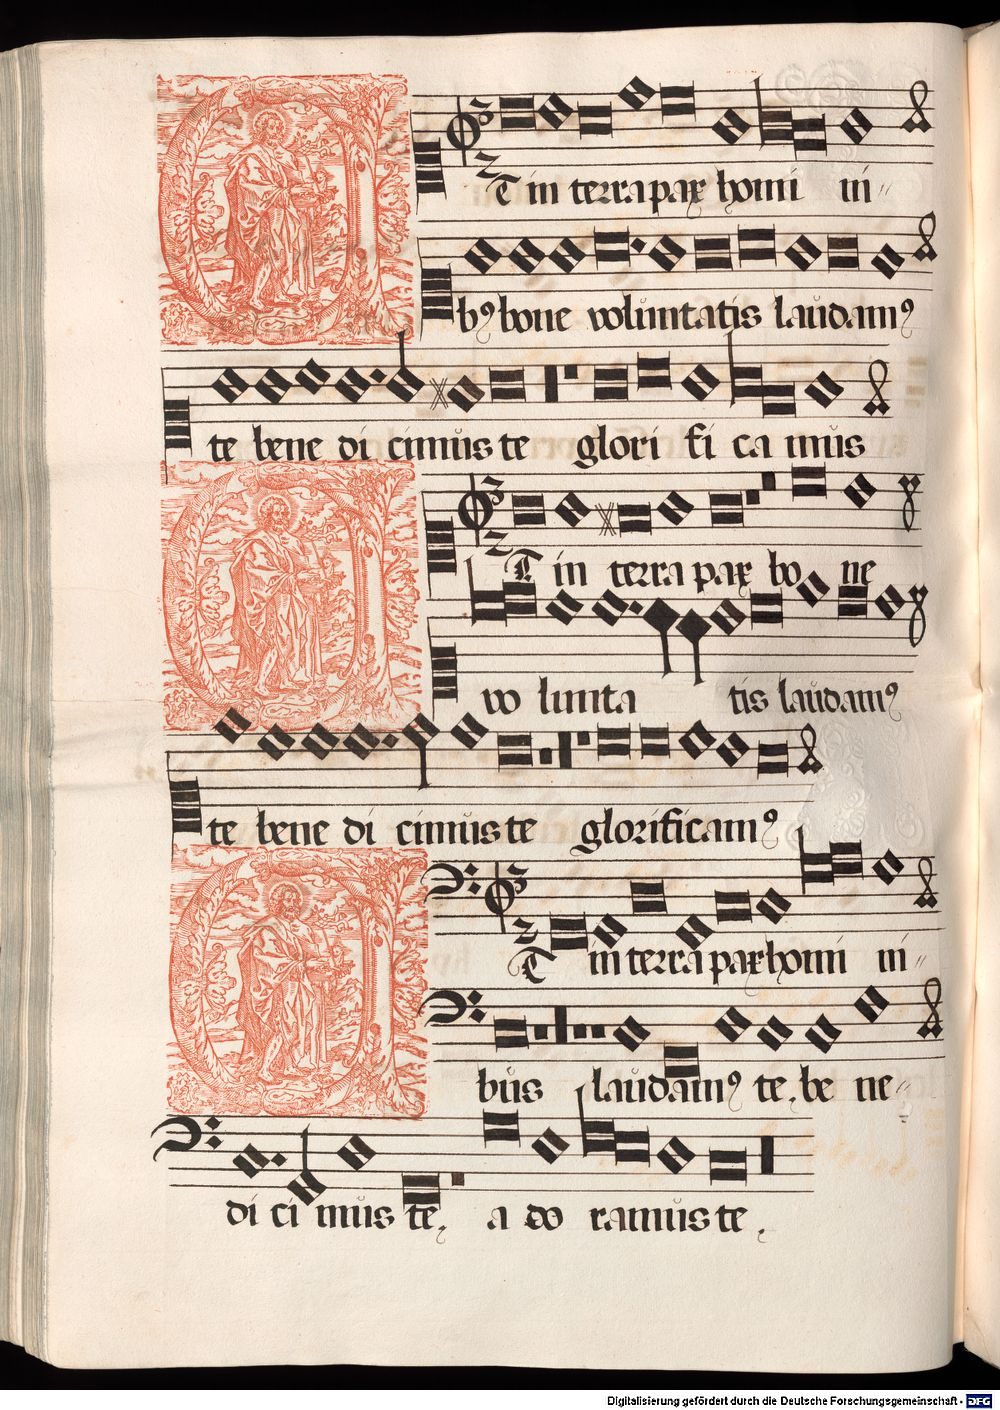 Et in terra pax homi ni
bꝰ bone voluntatis laudamꝰ
te bene di cimus te glori fi ca mus
Et in terra pax bo ne
vo lunta tis laudamꝰ
te bene di cimus te glorificamꝰ
Et in terra pax homi ni
bus laudamꝰ te. be ne
di ci mus te, a do ramus te.
Digitalisierung gefördert durch die Deutsche Forschungsgemeinschaft - DFG